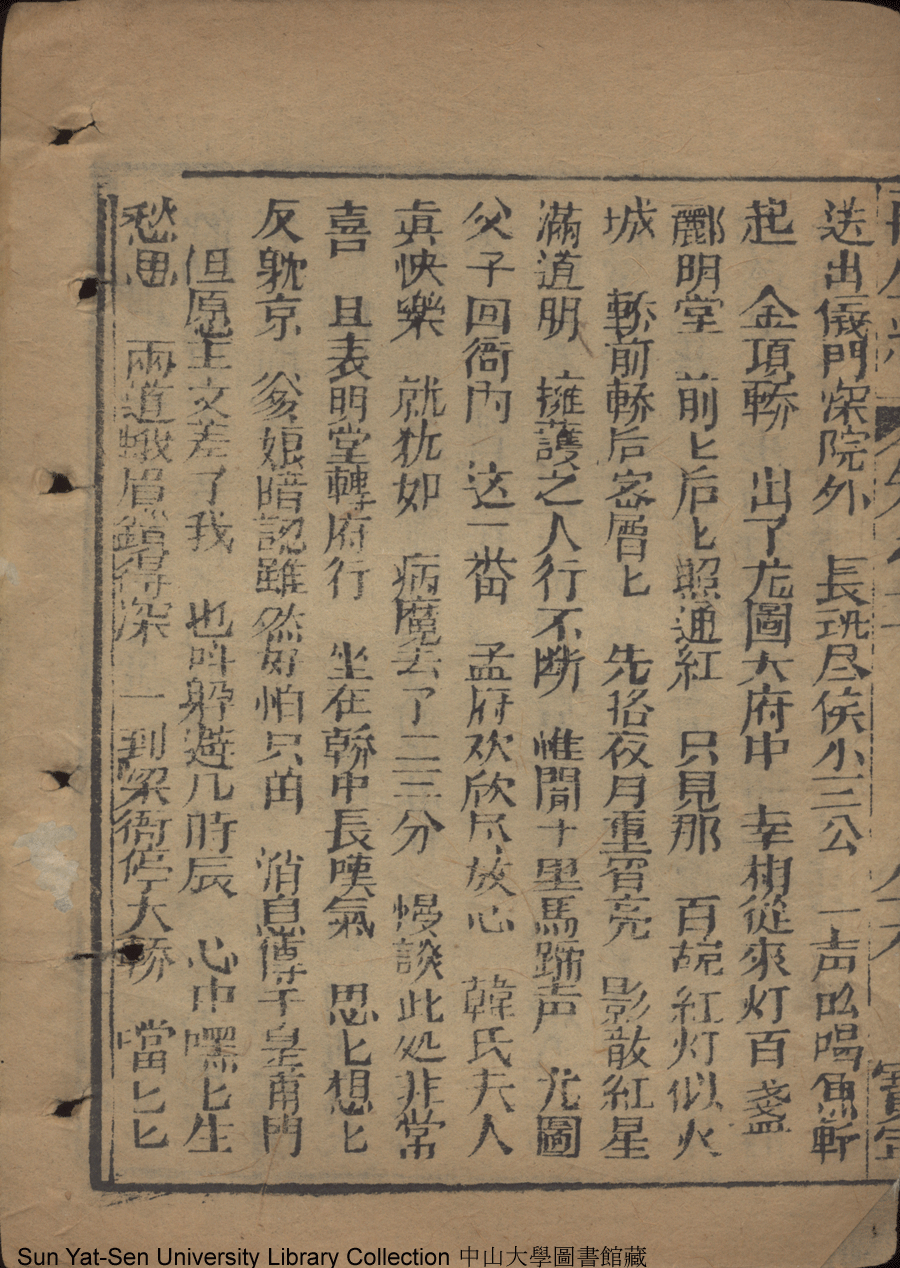 送出儀門深院外　長班尽侯小三公　一声吆喝魚軒
起　金項轎　出了尤圖大府中　幸相從來灯百盞
酈明堂　前匕后匕照通紅　只見那　百碗紅灯似火
城　轎前轎后密層匕　先挌夜月重宵亮　影散紅星
滿道明　擁護之人行不断　惟聞十里馬蹄声　尤圖
父子回衙内　这一畨　孟府欢欣尽放心　韓氏夫人
真快樂　就犹如　病魔去了二三分　慢談此処非常
喜　且表明堂轉府行　坐在轎中長嘆氣　思匕想匕
反躭京　爹娘暗認雖然好怕只苗　消息傳于皇甫門
但愿主文差了我　也呌躲遊几時辰　心中嘿匕生
愁思　兩道蛾眉鎖得深　一到梁衙停大轎　噹匕匕
寳寧
Sun Yat-Sen University Library Collection 中山大學圖書館藏